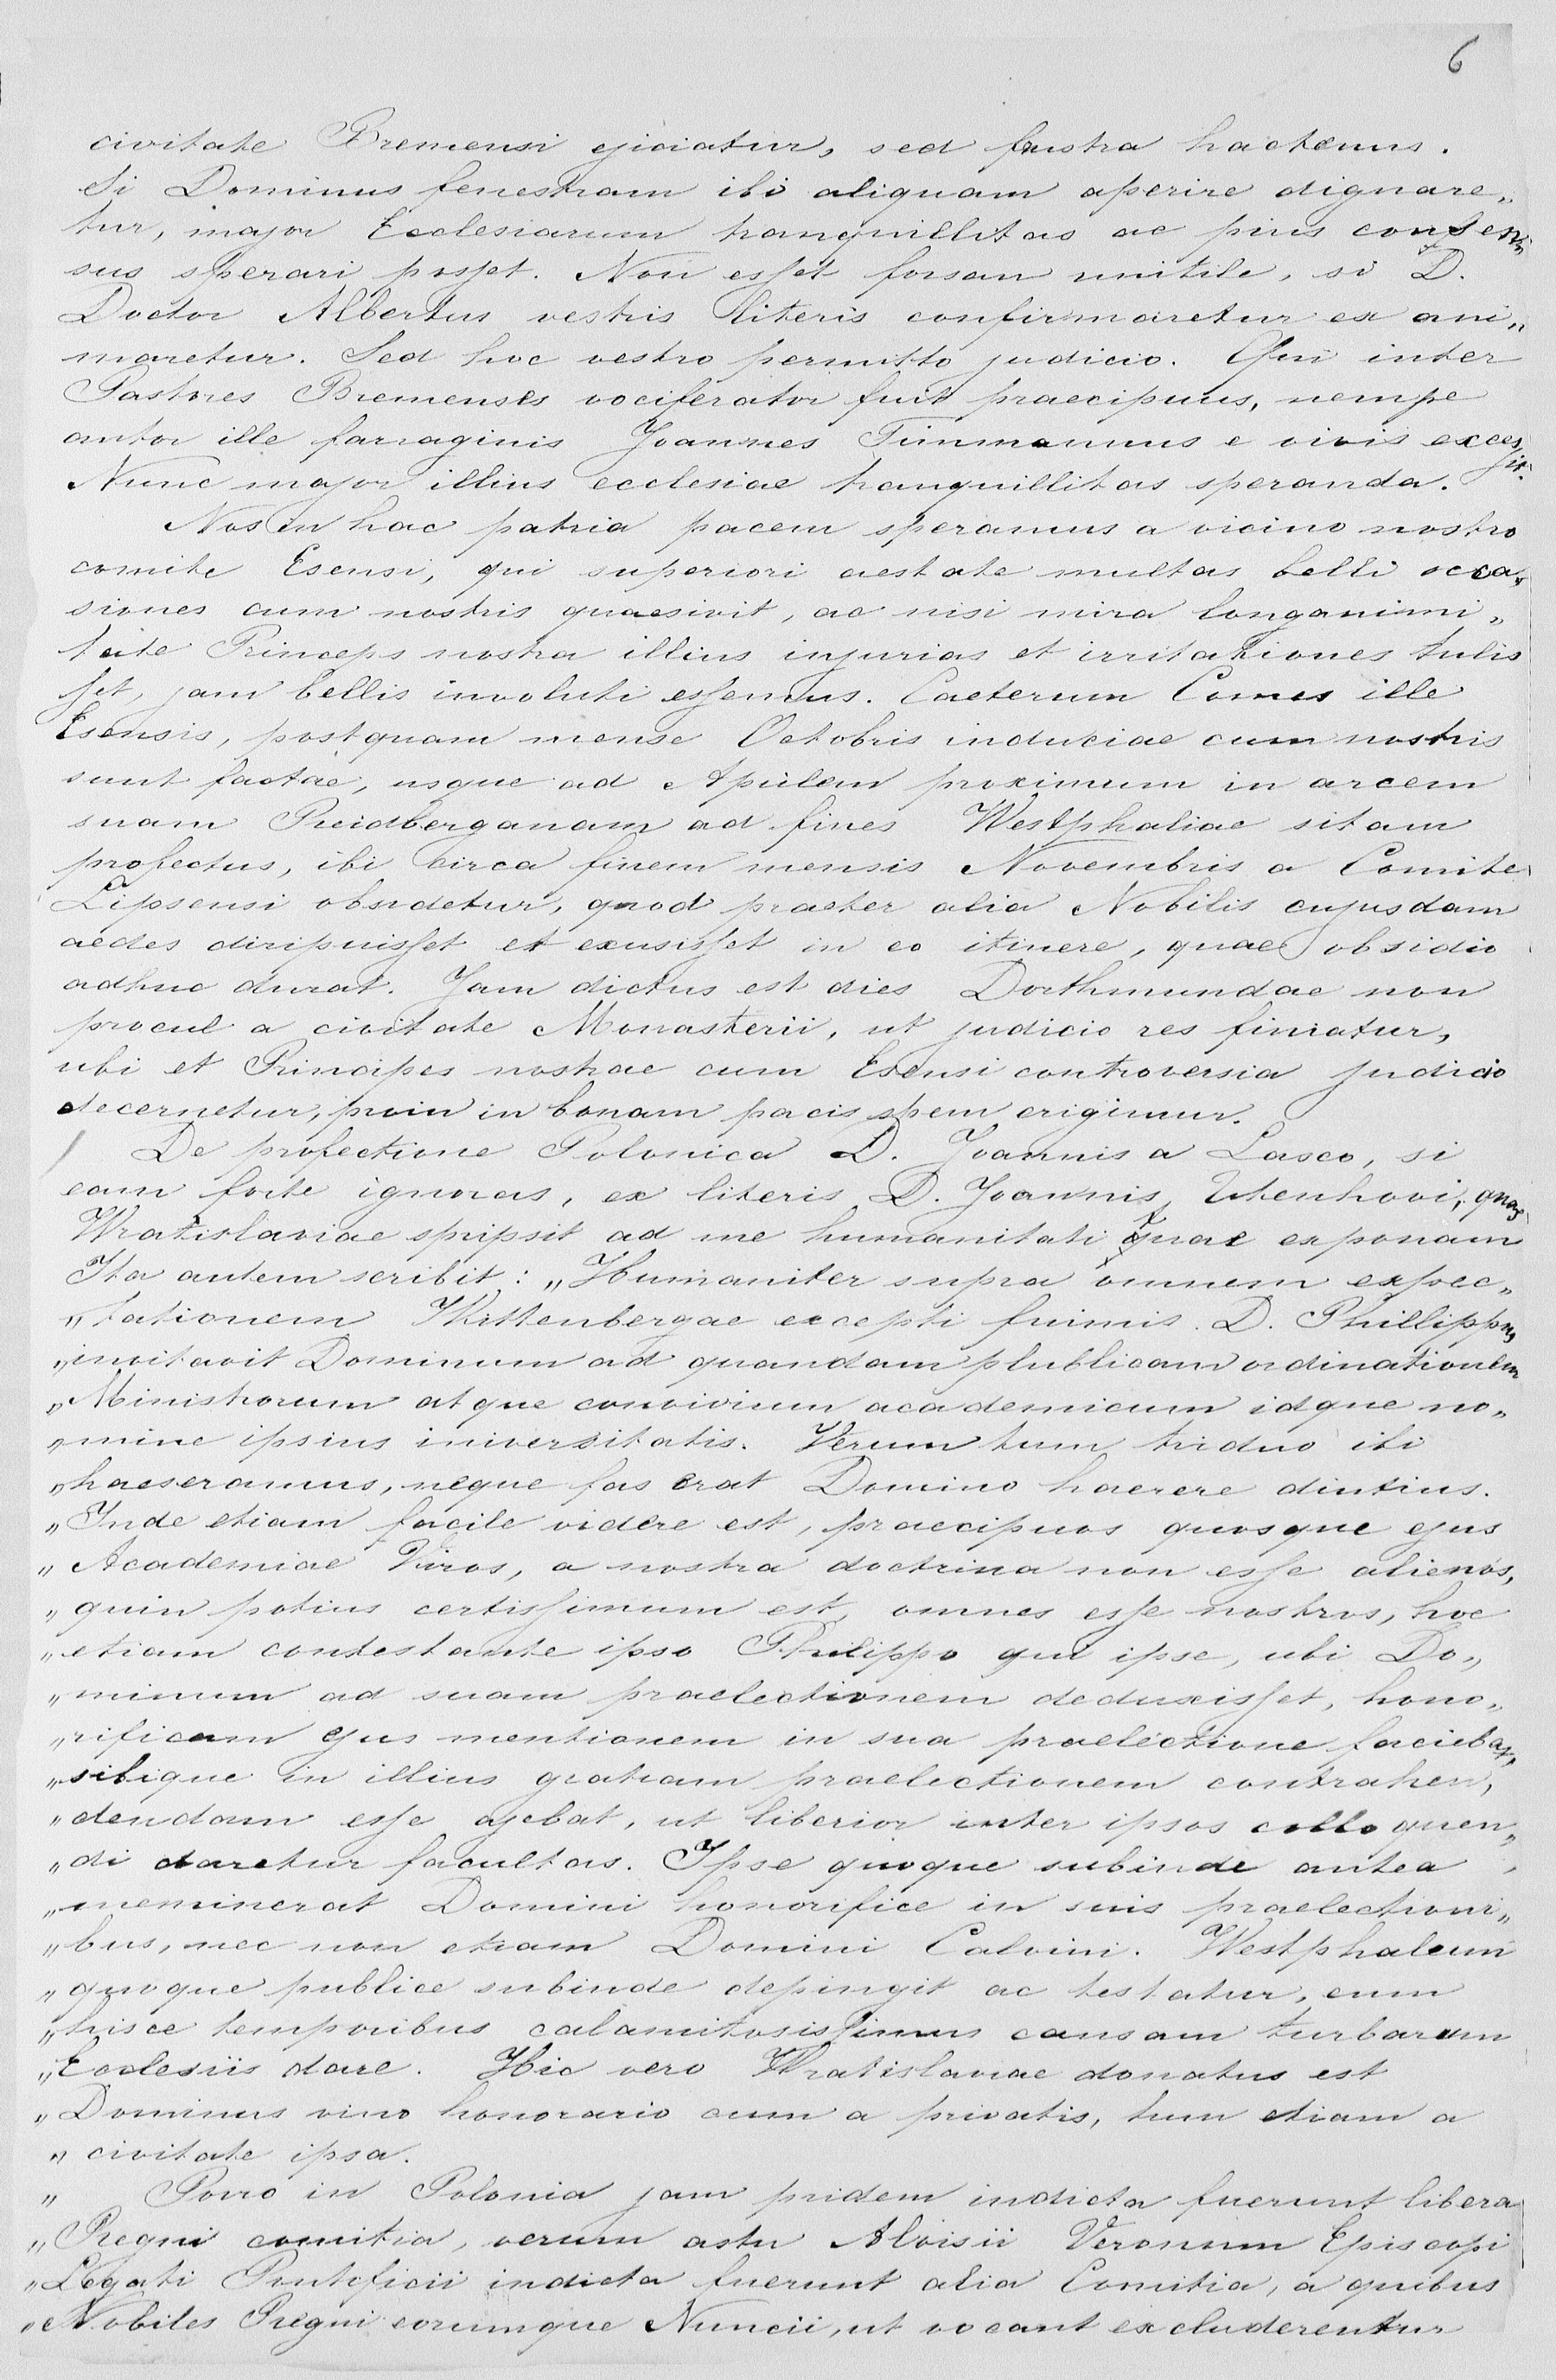 6
civitate Bremensi ejiciatur, sed frustra hactenus.
Si Dominus fenestram ibi aliquam aperire dignare„
tur, major Ecclesiarum tranquillitas ac pius consen„
sus sperari posset. Non esset forsan inutile, si D.
Doctor Albertus vestris literis confirmaretur ex ani„
maretur. Sed hoc vestro permitto judicio. Qui inter
Pastores Bremenses vociferator fuit praecipuus, nempe
autor ille farraginis Joannes Timmannus e vivis exces„
sit.
Nunc major illius ecclesiae tranquillitas speranda.
Nos in hac patria pacem speramus a vicino nostro
comite Esensi, qui superiori aestate multas belli occa„
siones cum nostris quaesivit, ac nisi mira longanimi„
tate Princeps nostra illius injurias et irritationes tulis
set, jam bellis involuti essemus. Caeterum Comes ille
Esensis, postquam mense Octobris induciae cum nostris
sunt factae, usque ad Aprilem proximum in arcem
suam Reidberganam ad fines Westphaliae sitam
profectus, ibi circa finem mensis Novembris a Comite
Lipsensi obsidetur, quod praeter alia Nobilis cujusdam
aedes diripuisset et exusisset in eo itinere, quae obsidio
adhuc durat. Jam dictus est dies Dorthmundae non
procul a civitate Monasterii, ut judicio res finiatur,
ubi et Principis nostrae cum Esensi controversia judicio
decernetur, proin in bonam pacis spem erigimur.
De profectione Polonica D. Joannis a Lasco, si
eam forte ignoras, ex literis D. Joannis Utenhovi, quas
Wratislaviae spripsit ad me humanitati quae exponam
Ita autem scribit: „Humaniter supra omnem expec„
„tationem Wittenbergae excepti fuimus. D. Phillippus
„invitavit Dominum ad quandam plublicam ordinationem
„Ministrorum atque convivium academicum idque no„
„mine ipsius iniversitatis. Verum tum triduo ibi
„haeseramus, neque fas erat Domino haerere diutius.
„Inde etiam facile videre est, praecipuos quosque ejus
„Academiae Viros, a nostra doctrina non esse alienos,
„quin potius certissimum est, omnes esse nostros, hoc
„etiam contestante ipso Philippo qui ipse, ubi Do„
„minum ad suam praelectionem deduxisset, hono„
„rificam ejus mentionem in sua praelectione faciebat,
„sibique in illius gratiam praelectionem contrahen„
„dendam esse ajebat, ut liberior inter ipsos colloquen„
„di daretur facultas. Ipse quoque subinde antea
„meminerat Domini honorifice in suis praelectioni„
„bus, nec non etiam Domini Calvini. Westphalum
„quoque publice subinde depingit ac testatur, eum
„hisce temporibus calamitosissimis causam turbarum
„Ecclesiis dare. Hic vero Wratislaviae donatus est
„Dominus vino honorario cum a privatis, tum etiam a
„civitate ipsa.
„ Porro in Polonia jam pridem indicta fuerunt libera
„Regni comitia, verum astu Aloisii Veronum Episcopi
„Legati Pontificii indicta fuerunt alia Comitia, a quibus
„Nobiles Regni eorumque Nuncii, ut vocant excluderentur